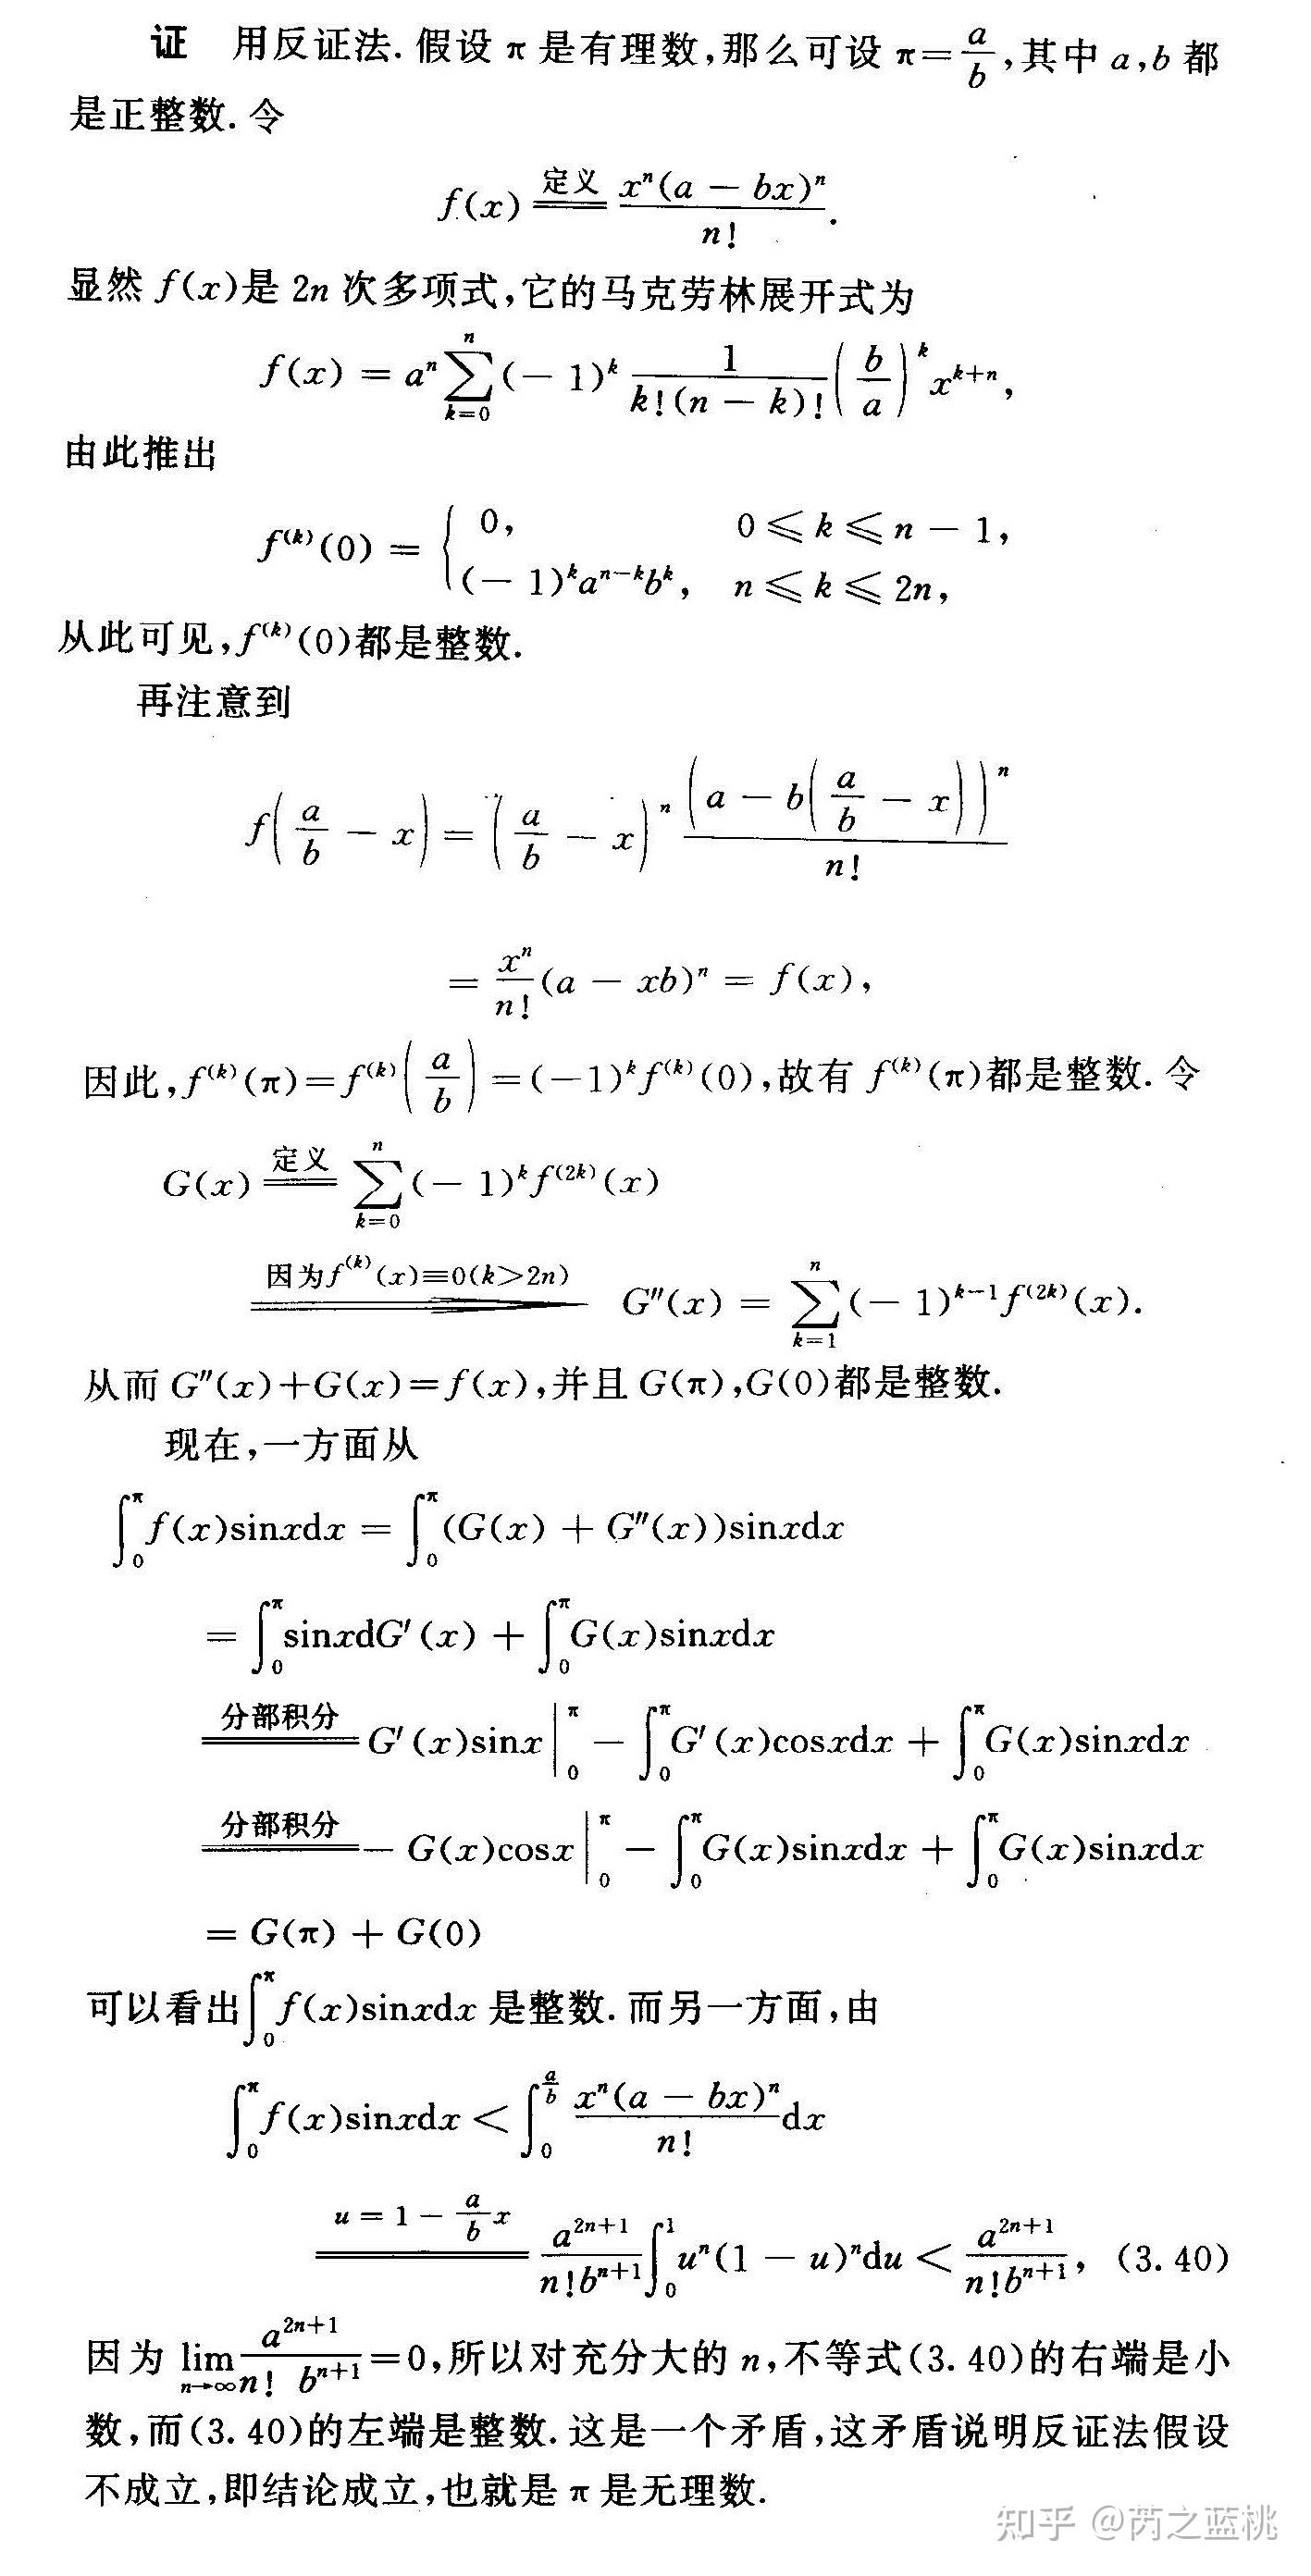 证 用反证法. 假设 π 是有理数,那么可设 π=a/b,其中 a,b 都
是正整数. 令
f(x) ≝(定义) x^n(a − bx)^n / n! .
显然 f(x)是 2n 次多项式,它的马克劳林展开式为
f(x) = a^n ∑_{k=0}^{n} (− 1)^k 1/(k!(n − k)!) (b/a)^k x^{k+n},
由此推出
f^{(k)}(0) = { 0, 0 ≤ k ≤ n − 1,
(− 1)^k a^{n−k} b^k, n ≤ k ≤ 2n,
从此可见,f^{(k)}(0)都是整数.
再注意到
f(a/b − x) = (a/b − x)^n (a − b(a/b − x))^n / n!
= x^n/n! (a − xb)^n = f(x),
因此,f^{(k)}(π)=f^{(k)}(a/b)=(−1)^k f^{(k)}(0),故有 f^{(k)}(π)都是整数. 令
G(x) ≝(定义) ∑_{k=0}^{n} (− 1)^k f^{(2k)}(x)
因为f^{(k)}(x)≡0(k>2n) ⟹ G″(x) = ∑_{k=1}^{n} (− 1)^{k−1} f^{(2k)}(x).
从而 G″(x)+G(x)=f(x),并且 G(π),G(0)都是整数.
现在,一方面从
∫_0^π f(x)sinxdx = ∫_0^π (G(x) + G″(x))sinxdx
= ∫_0^π sinxdG′(x) + ∫_0^π G(x)sinxdx
=(分部积分) G′(x)sinx |_0^π − ∫_0^π G′(x)cosxdx + ∫_0^π G(x)sinxdx
=(分部积分) − G(x)cosx |_0^π − ∫_0^π G(x)sinxdx + ∫_0^π G(x)sinxdx
= G(π) + G(0)
可以看出∫_0^π f(x)sinxdx 是整数. 而另一方面,由
∫_0^π f(x)sinxdx < ∫_0^{a/b} x^n(a − bx)^n / n! dx
=(u = 1 − a/b x) a^{2n+1}/(n!b^{n+1}) ∫_0^1 u^n(1 − u)^n du < a^{2n+1}/(n!b^{n+1}), (3.40)
因为 lim_{n→∞} a^{2n+1}/(n! b^{n+1})=0,所以对充分大的 n,不等式(3.40)的右端是小
数,而(3.40)的左端是整数. 这是一个矛盾,这矛盾说明反证法假设
不成立,即结论成立,也就是 π 是无理数.
知乎 @芮之蓝桃